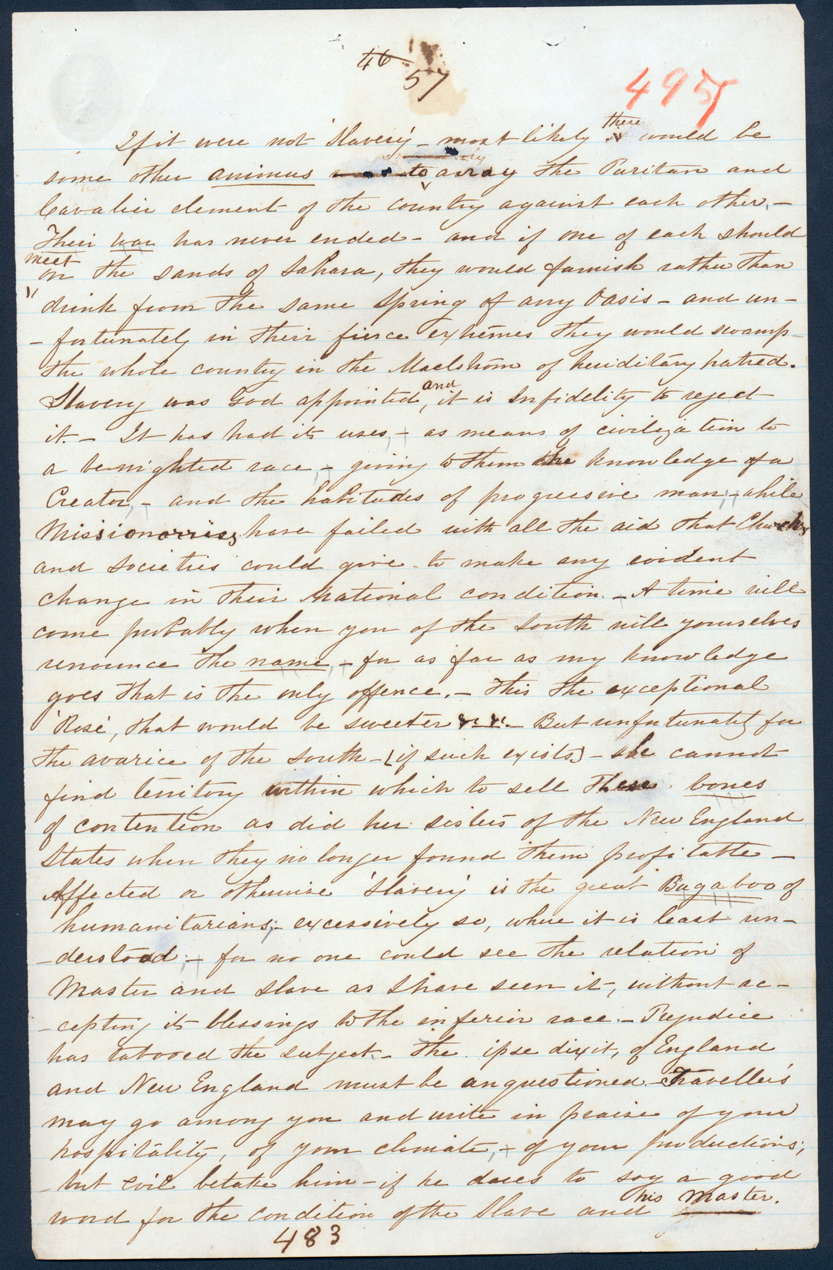 46
57
495
If it were not 'Slavery' – most likely there would be
some other animus to array the Puritan and
Cavalier element of the country against each other. –
Their war has never ended – and if one of each should
meet
on the sands of Sahara, they would famish rather than
drink from the same spring of any Oasis – and un-
-fortunately in their fierce extremes they would swamp
the whole country in the Maelstrom of heriditary hatred.
Slavery was God appointed, and it is Infidelity to reject
it. – It has had its uses, – as means of civilization to
a be-nighted race, – giving to them the knowledge of a
Creator, – and the habitudes of progressive man, – while
Missionarries have failed with all the aid that Church
and Societies could give to make any evident
change in their National condition. – A time will
come probably when you of the South will yourselves
renounce the name, – for as far as my knowledge
goes that is the only offence. – This the exceptional
Rose, that would be sweeter &c. &c. – But unfortunately for
the avarice of the South – (if such exists) – she cannot
find territory within which to sell these bones
of contention as did her sisters of the New England
States when they no longer found them profitable –
Affected or otherwise 'Slavery' is the great Bugaboo of
humanitarians; – excessively so, where it is least un-
-derstood, – for no one could see the relation of
Master and Slave as I have seen it, without ac-
-cepting its blessings to the inferior race. – Prejudice
has tabooed the subject. – The ipse dixit, of England
and New England must be unquestioned. – Traveller's
may go among you and write in praise of your
hospitality, of your climate, + of your productions;
– but evil betake him – if he dares to say a good
word for the condition of the Slave and his Master.
483